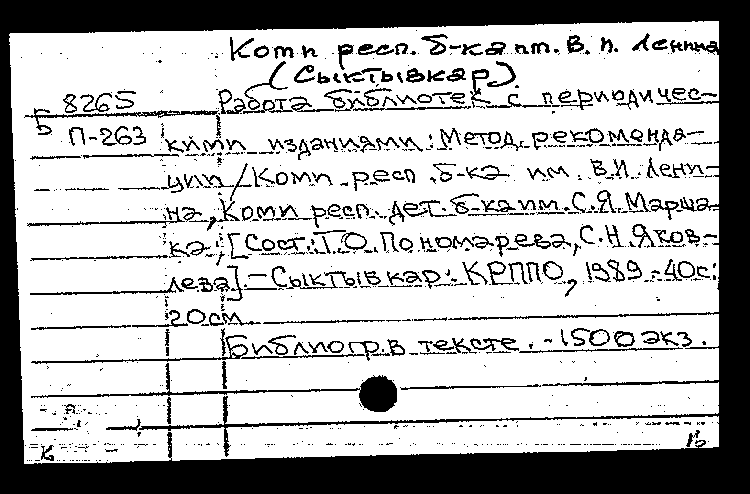 Коми респ. б-ка им. В. И. Ленина
(Сыктывкар)
Б 8265
П-263
Работа библиотек с периодичес-
кими изданиями: Метод. рекоменда-
ции / Коми респ. б-ка им. В.И. Лени-
на, Коми респ. дет. б-ка им. С.Я. Марша-
ка; [Сост.: Т.О. Пономарева, С.Н. Яков-
лева]. - Сыктывкар: КРППО, 1989. - 40с.;
20см.
Библиогр. в тексте. - 1500 экз.